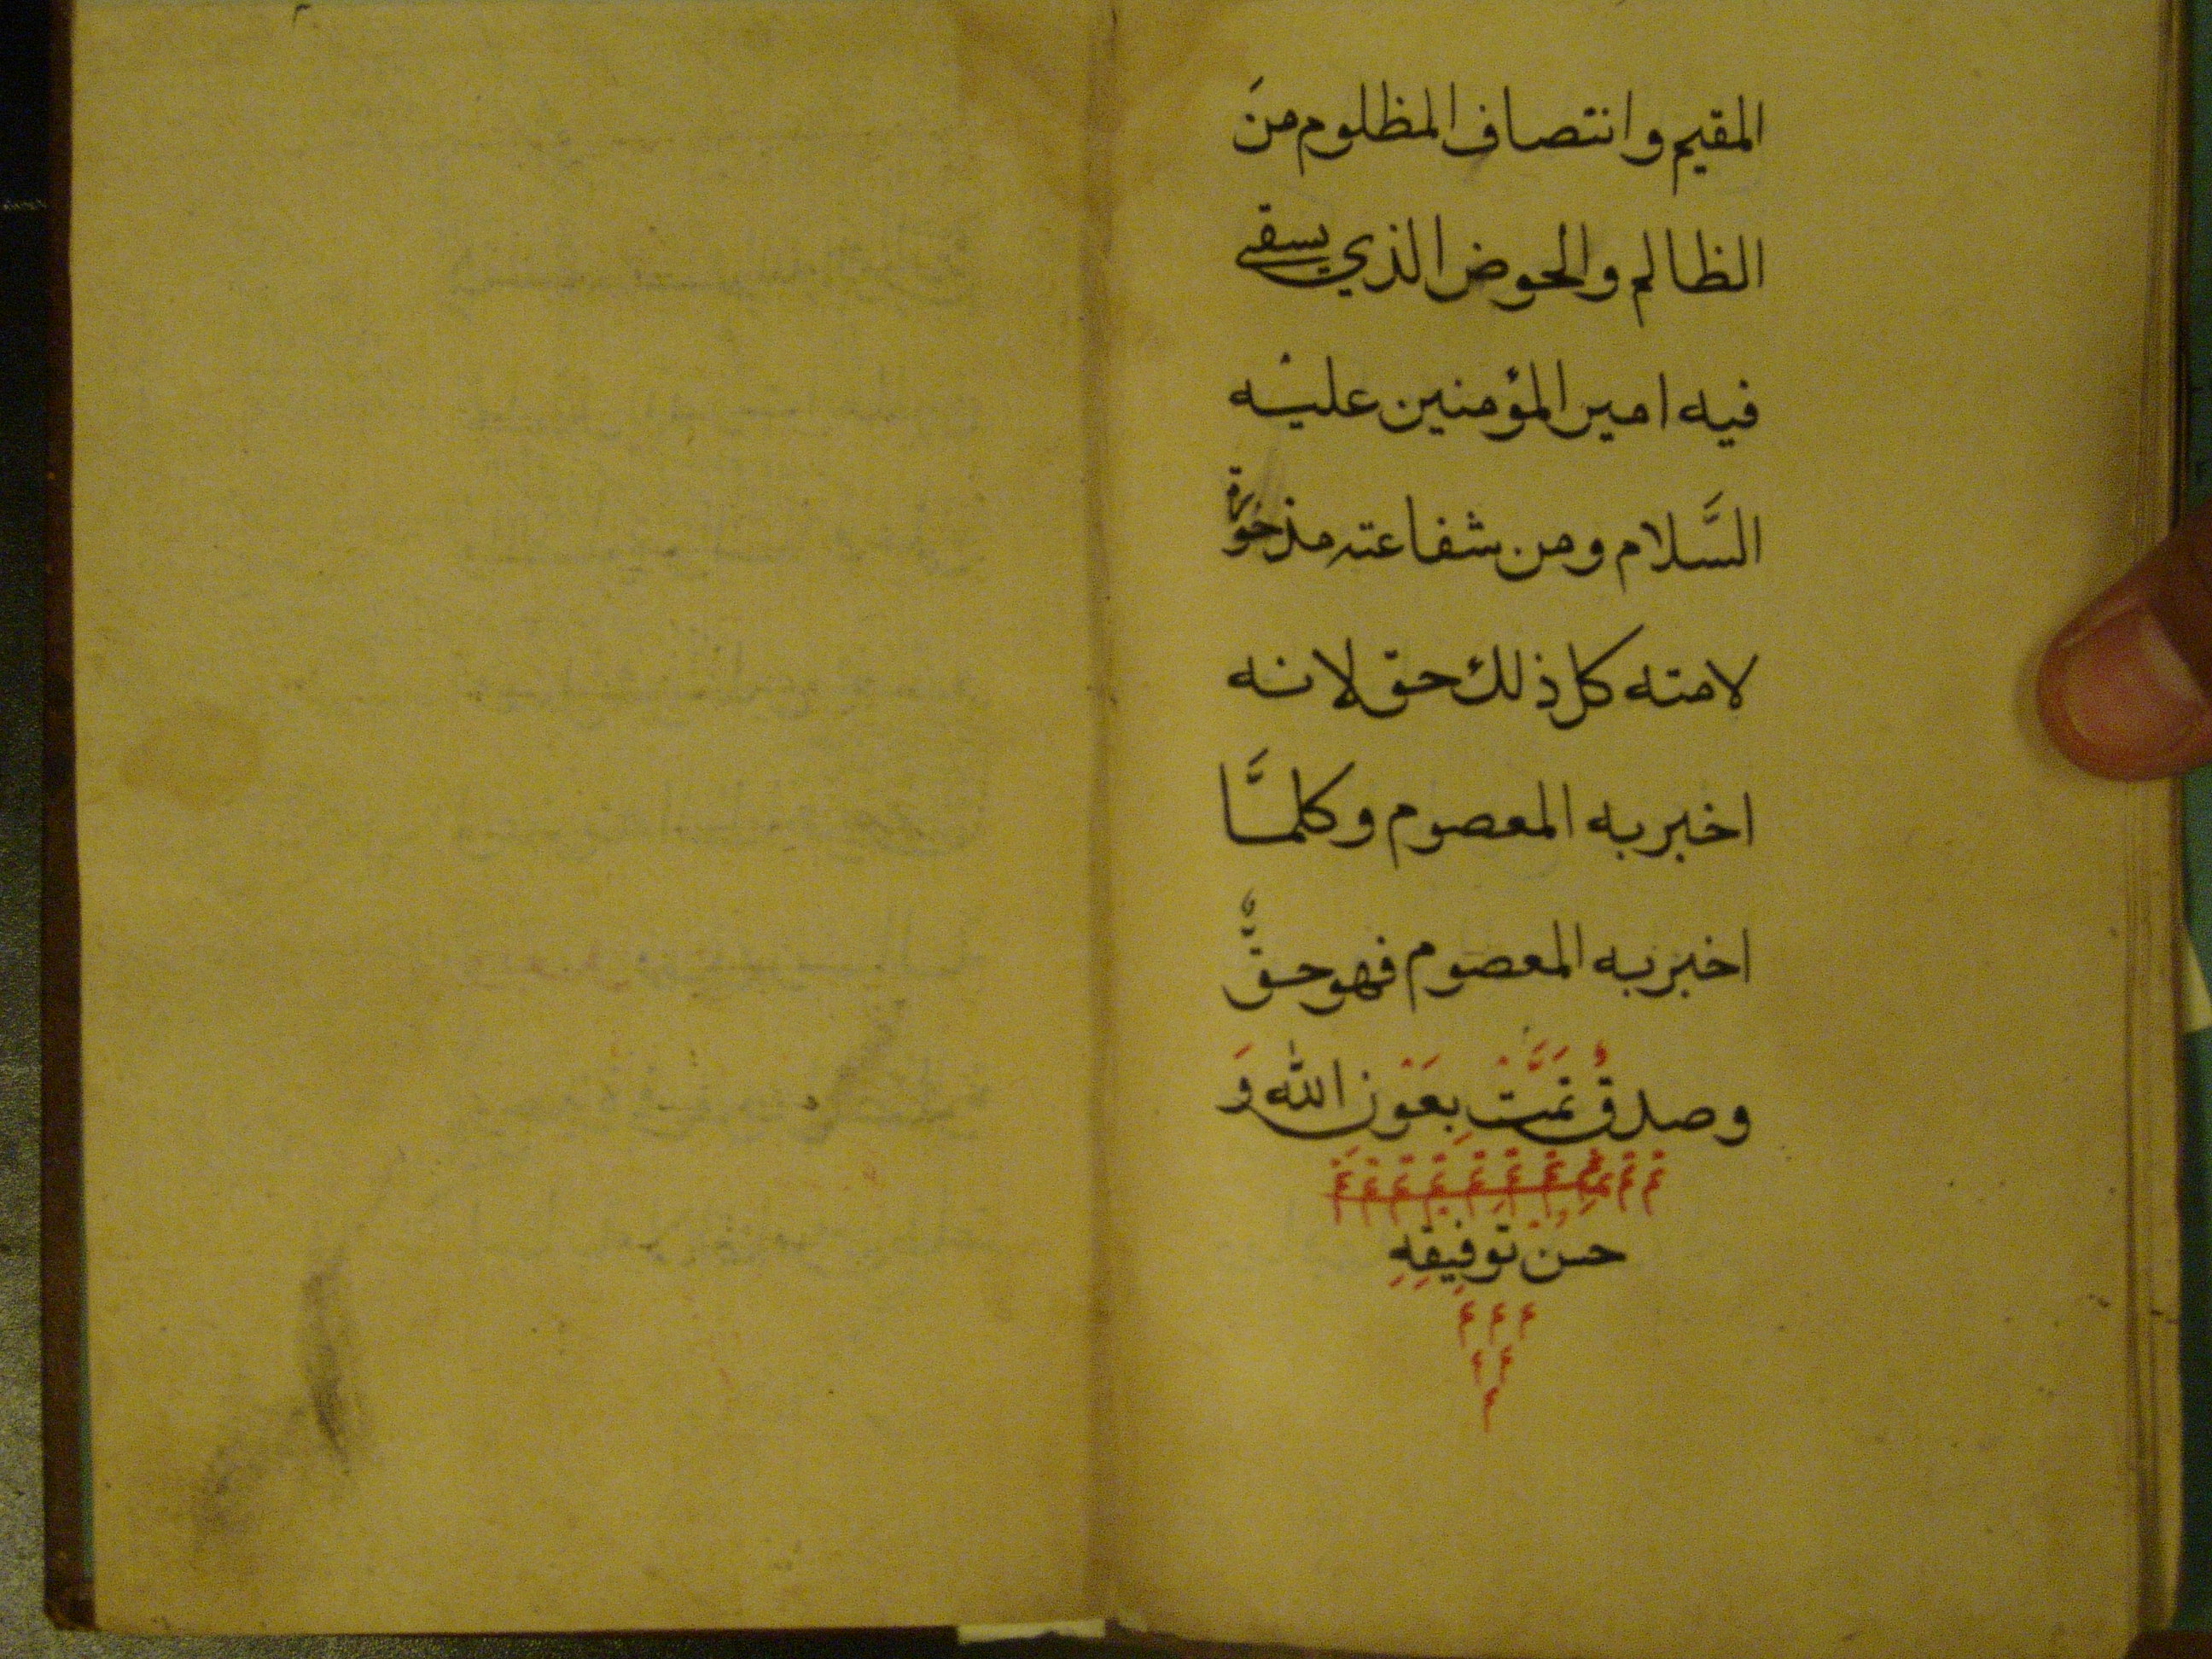 المقيم وانتصاف المظلوم منَ
الظالم والحوض الذي يسقي
فيه امير المؤمنين عليه
السَّلام ومن شفاعته مذخورة
لامته كل ذلك حق لانه
اخبر به المعصوم وكلمَّا
اخبر به المعصوم فهو حقٌّ
وصدق تمَّت بعَون الله وَ
حسن توفيقهِ